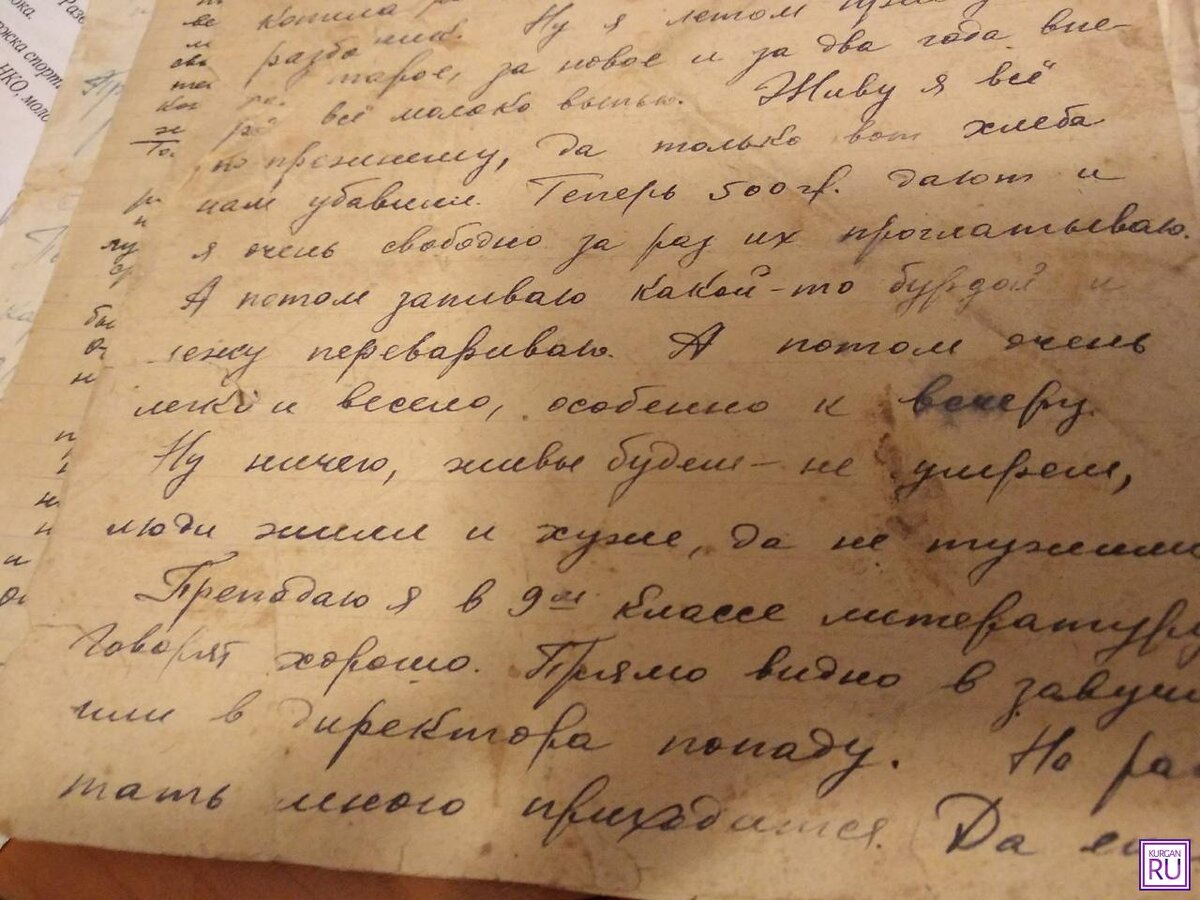 Ну я летом
старое, за новое и за два года впе-
всё молоко выпью. Живу я всё
по прежнему, да только вот хлеба
нам убавили. Теперь 500 гр. дают и
я очень свободно за раз их проглатываю.
А потом запиваю какой-то бурдой и
лежу перевариваю. А потом очень
легко и весело, особенно к вечеру.
Ну ничего, живы будем - не умрем,
люди жили и хуже, да не тужили
Преподаю я в 9ом классе литературу
говорят хорошо. Прямо видно в завучи
или в директора попаду. Но ра
тать много приходится. Да
KURGAN
RU